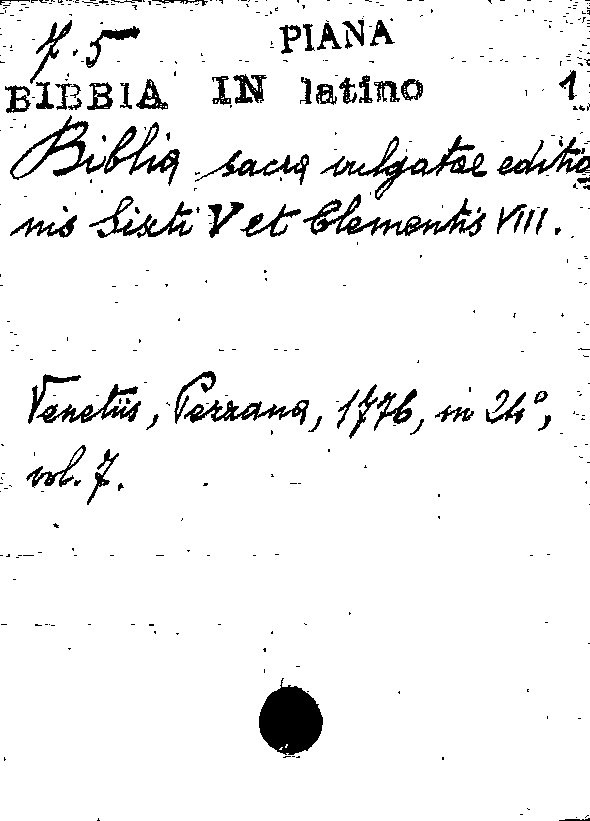 7.5 PIANA
BIBBIA IN latino 1
Biblia sacra vulgatae editio
nis Sixti V et Clementis VIII.
Venetiis, Pezzana, 1776, in 24°,
vol. 7.